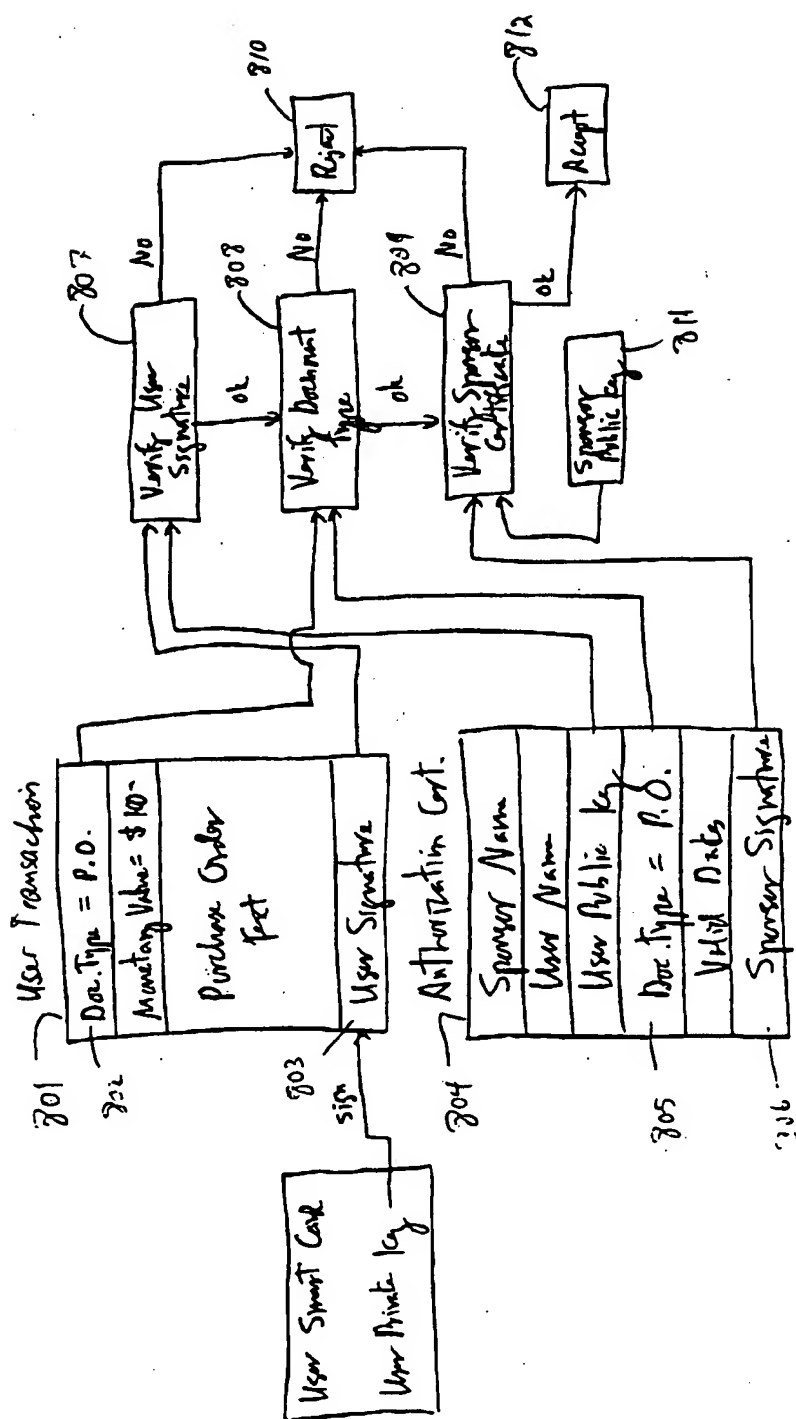 User Smart Card
User Private key
sign
801
User Transaction
802
Doc. Type = P.O.
Monetary Value = $10-
Purchase Order
Text
803
User Signature
804
Authorization Cert.
Sponsor Name
User Name
User Public key
805
Doc. Type = P.O.
Valid Dates
806
Sponsor Signature
807
Verify User
Signature
No
ok
808
Verify Document
Type
No
ok
809
Verify Sponsor
Certificate
No
ok
Sponsor
Public key
811
810
Reject
812
Accept